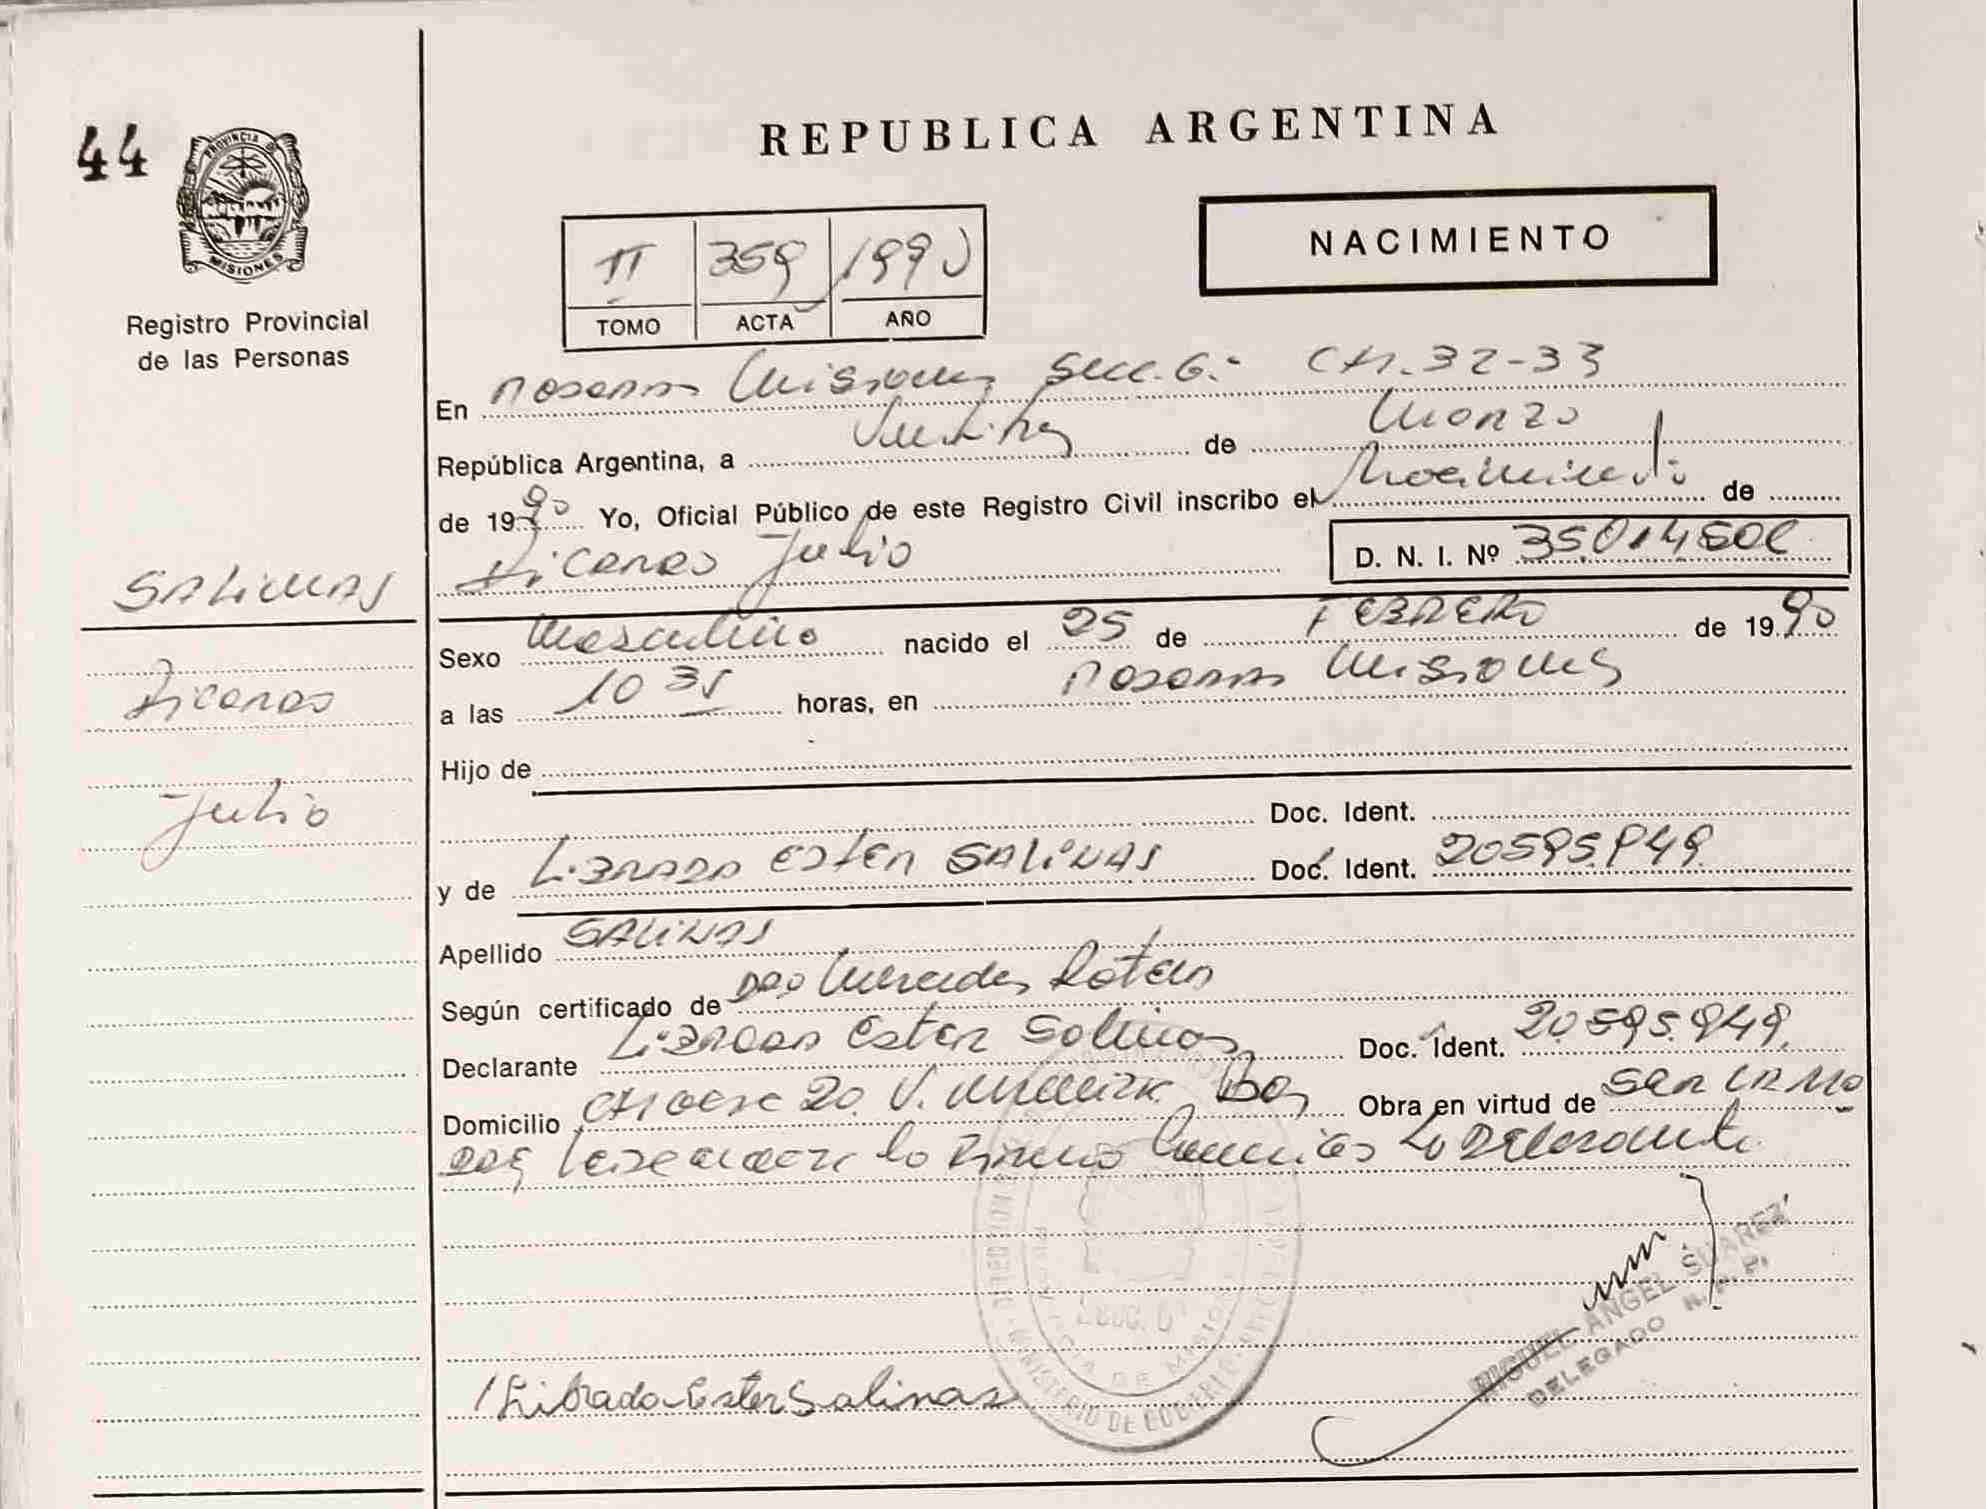 REPUBLICA ARGENTINA
44
PROVINCIA DE
MISIONES
Registro Provincial
de las Personas
NACIMIENTO
II 359 1990
TOMO ACTA AÑO
En Posadas Misiones Secc. 6.- CH. 32-33
República Argentina, a Veinte de Marzo
de 1990 Yo, Oficial Público de este Registro Civil inscribo el Nacimiento de
Julio
D. N. I. Nº 35.014.50
SALINAS
Sexo Masculino nacido el 25 de FEBRERO de 1990
a las 10 35 horas, en Posadas Misiones
Julio
Hijo de
Doc. Ident.
y de Librada Ester SALINAS Doc. Ident. 20595.949
Apellido SALINAS
Según certificado de Dra Mercedes
Declarante Librada Ester Salinas Doc. Ident. 20.595.949
Domicilio 20. V. Obra en virtud de ser la Mo
Dre la Declarante
Librada Ester Salinas
MINISTERIO DE GOBIERNO
PROVINCIA DE MISIONES
MIGUEL ANGEL SUAREZ
DELEGADO R. P. P.